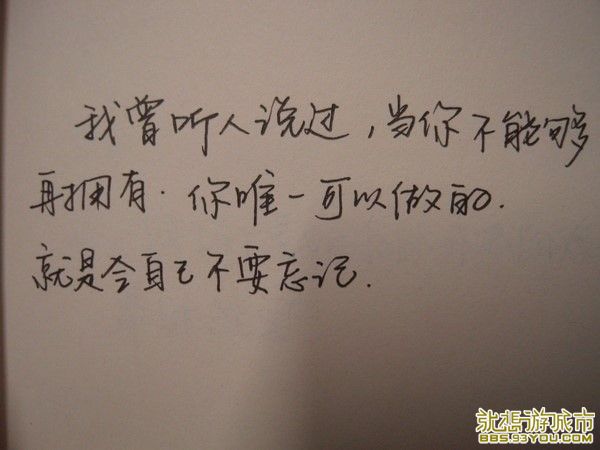 我曾听人说过，当你不能够
再拥有.你唯一可以做的.
就是令自己不要忘记.
游城市
BBS.93YOU.COM